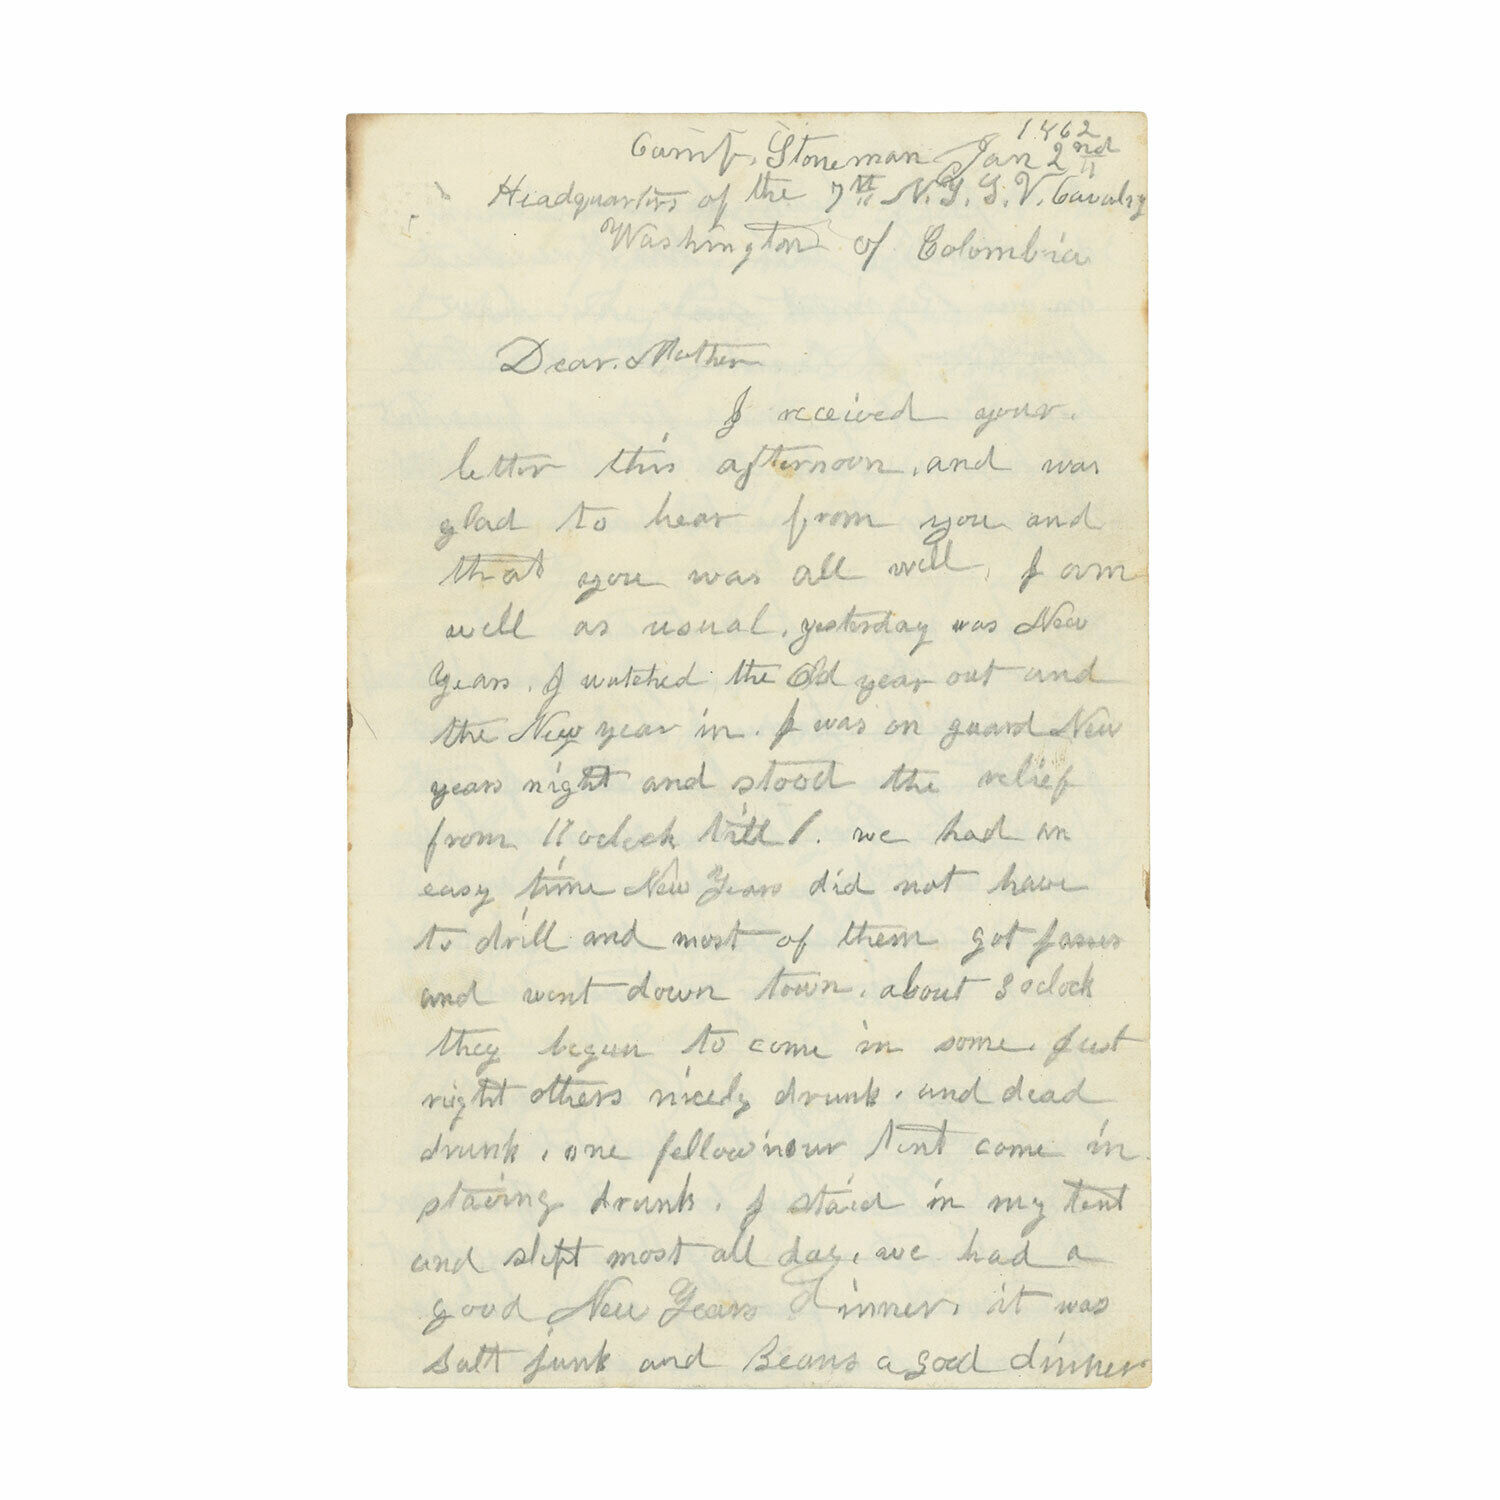 1862
Camp. Stoneman Jan 2nd
Headquarters of the 7th N.Y.S.V. Cavalry
Washington of Colombia
Dear. Mother
I received your.
letter this afternoon, and was
glad to hear from you and
that you was all well, I am
well as usual, yesterday was New
Years. I watched the Old year out and
the New year in. I was on guard New
years night and stood the relief
from 11 oclock till 1. we had an
easy time New Years did not have
to drill and most of them got passes
and went down town. about 3 oclock
they begun to come in some. just
right others nicely drunk. and dead
drunk, one fellow in our tent come in
staving drunk. I staid in my tent
and slept most all day, we had a
good New Years Dinner, it was
Salt junk and Beans a good dinner